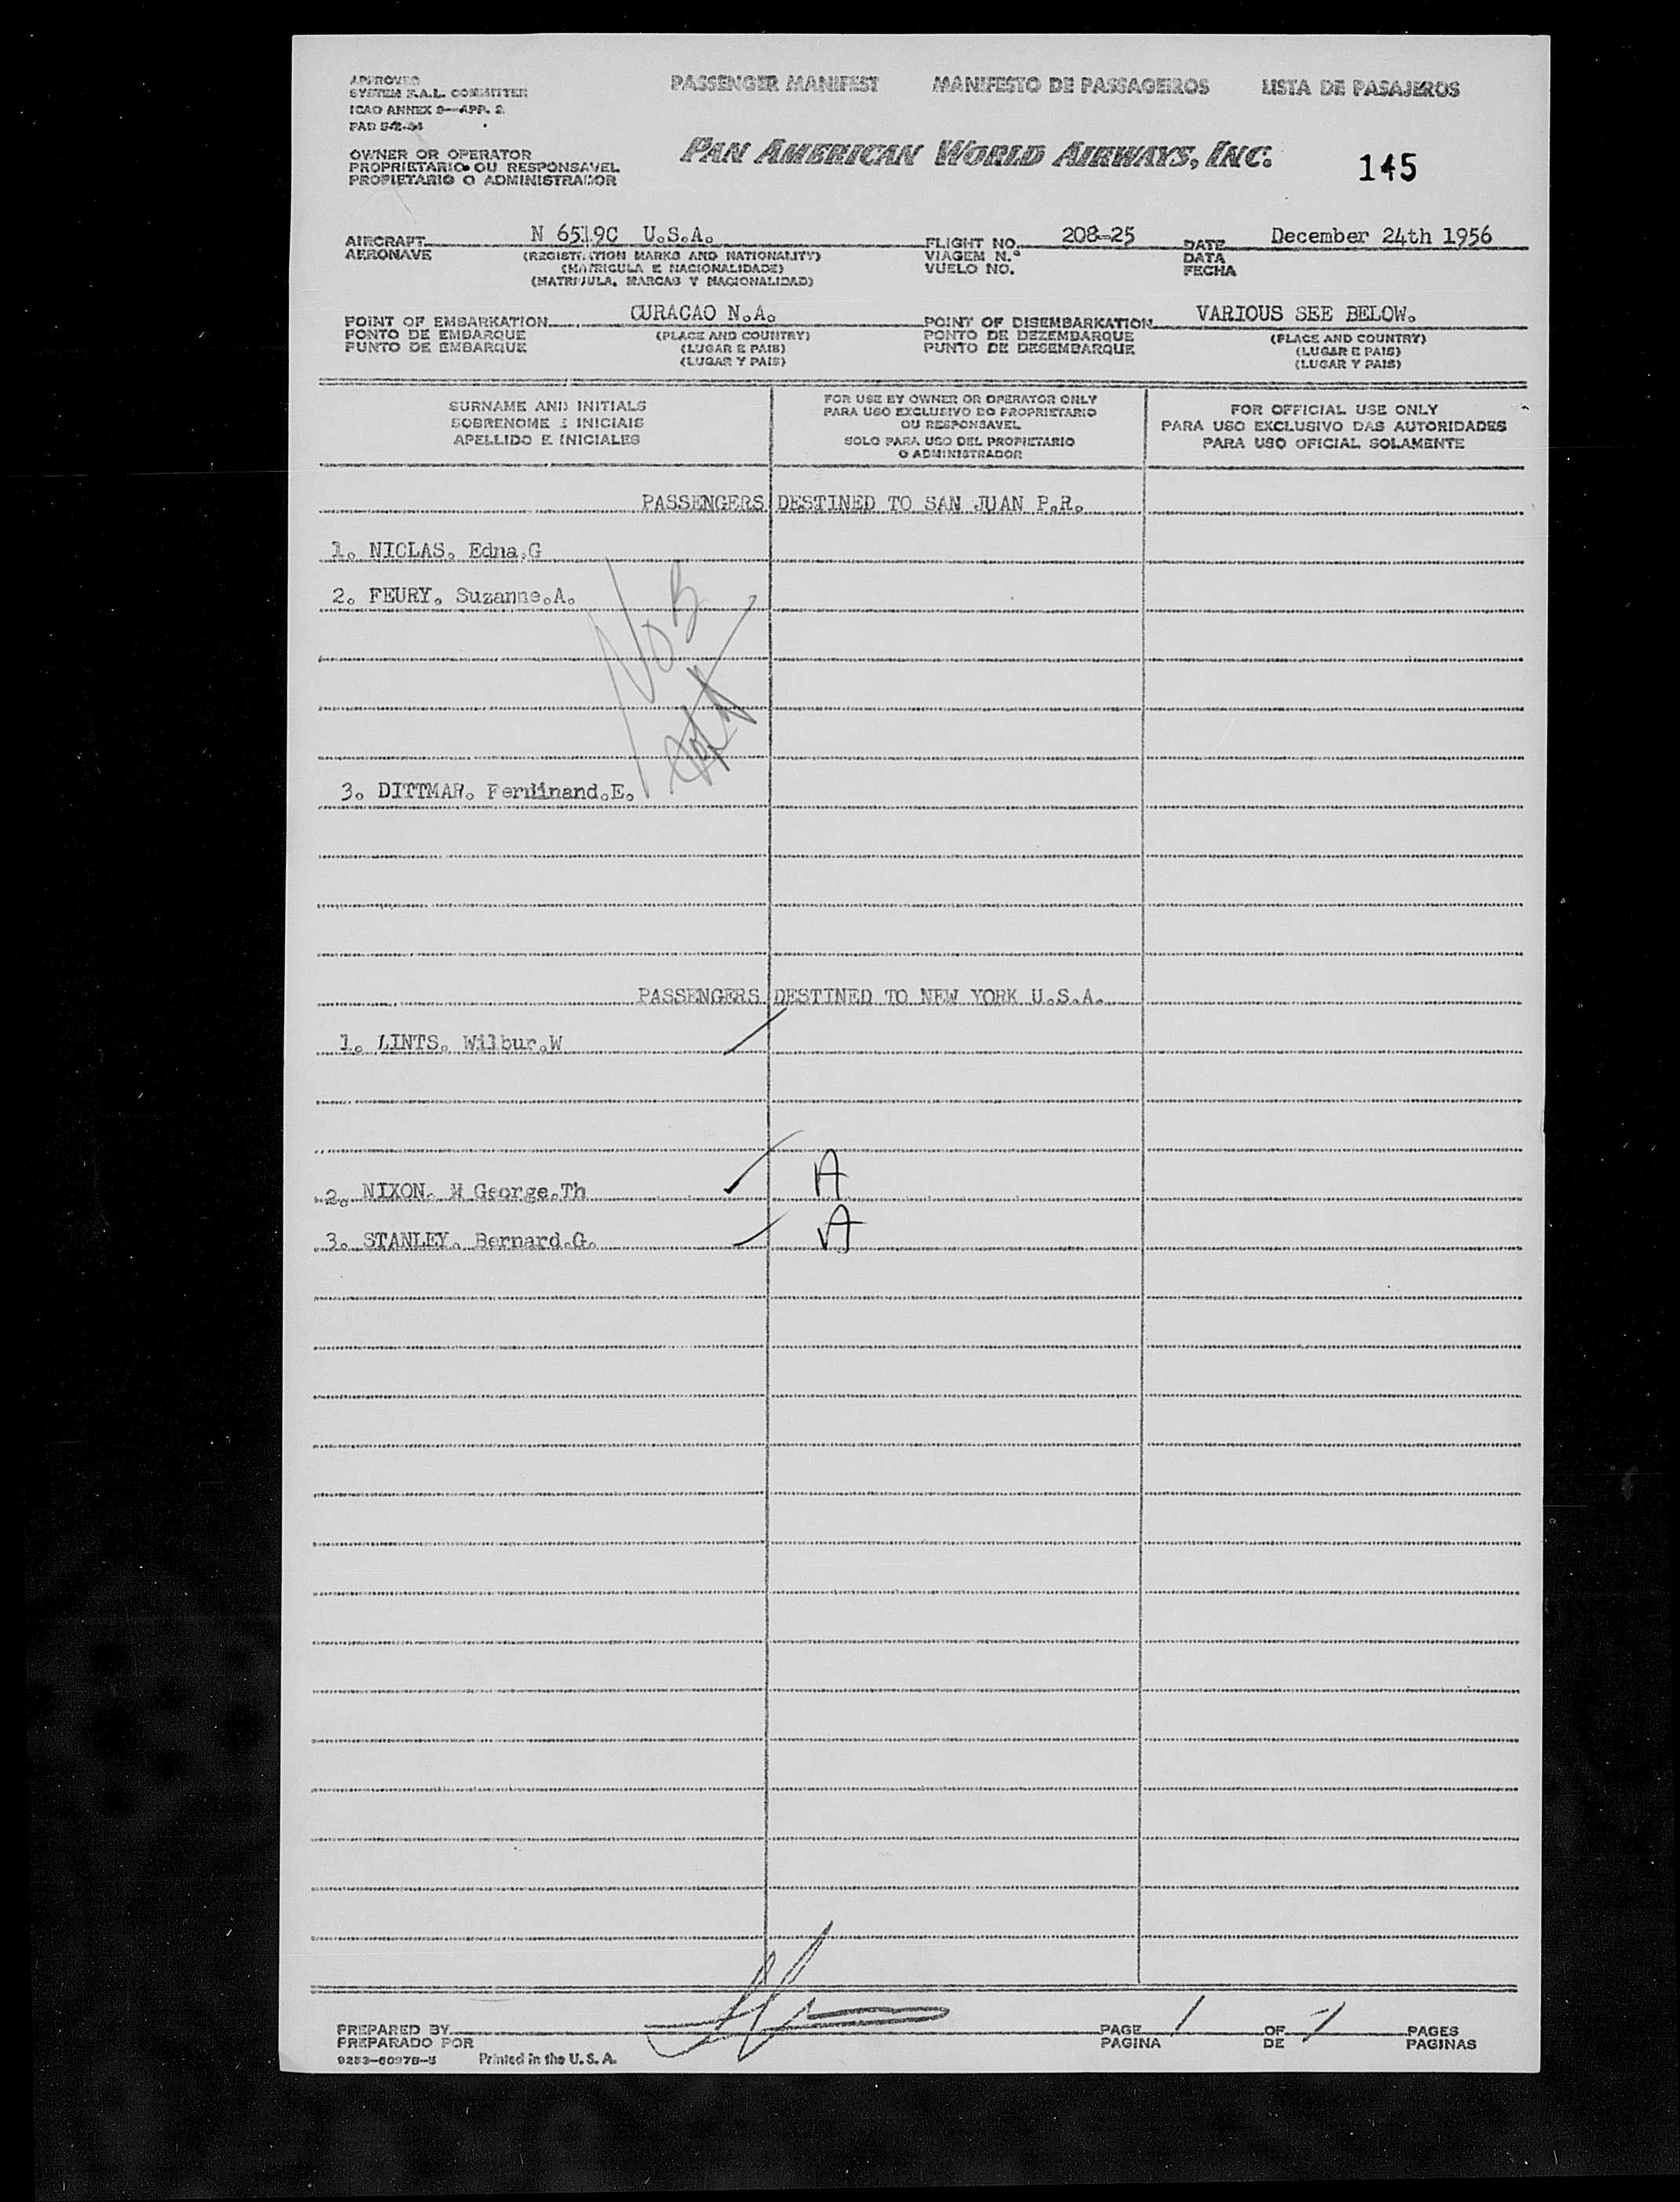 APPROVED
SYSTEM F.A.L. COMMITTEE
ICAO ANNEX 9—APP. 2
PASSENGER MANIFEST MANIFESTO DE PASSAGEIROS LISTA DE PASAJEROS
OWNER OR OPERATOR
PROPRIETARIO OU RESPONSAVEL
PROPIETARIO O ADMINISTRADOR
PAN AMERICAN WORLD AIRWAYS, INC.
145
AIRCRAFT N 6519C U.S.A. FLIGHT NO. 208-25 DATE December 24th 1956
AERONAVE (REGISTRATION MARKS AND NATIONALITY) VIAGEM N.º DATA
(MATRICULA E NACIONALIDADE) VUELO NO. FECHA
(MATRICULA, MARCAS Y NACIONALIDAD)
POINT OF EMBARKATION CURACAO N.A. POINT OF DISEMBARKATION VARIOUS SEE BELOW.
PONTO DE EMBARQUE (PLACE AND COUNTRY) PONTO DE DEZEMBARQUE (PLACE AND COUNTRY)
PUNTO DE EMBARQUE (LUGAR E PAIS) PUNTO DE DESEMBARQUE (LUGAR E PAIS)
(LUGAR Y PAIS) (LUGAR Y PAIS)
SURNAME AND INITIALS
SOBRENOME E INICIAIS
APELLIDO E INICIALES
FOR USE BY OWNER OR OPERATOR ONLY
PARA USO EXCLUSIVO DO PROPRIETARIO
OU RESPONSAVEL
SOLO PARA USO DEL PROPIETARIO
O ADMINISTRADOR
FOR OFFICIAL USE ONLY
PARA USO EXCLUSIVO DAS AUTORIDADES
PARA USO OFICIAL SOLAMENTE
PASSENGERS DESTINED TO SAN JUAN P.R.
1. NICLAS. Edna.G
2. FEURY. Suzanne.A.
3. DITTMAR. Ferdinand.E.
PASSENGERS DESTINED TO NEW YORK U.S.A.
1. LINTS. Wilbur.W
2. NIXON. M George.Th A
3. STANLEY. Bernard.G. A
PREPARED BY PAGE 1 OF 1 PAGES
PREPARADO POR PAGINA DE PAGINAS
Printed in the U.S.A.